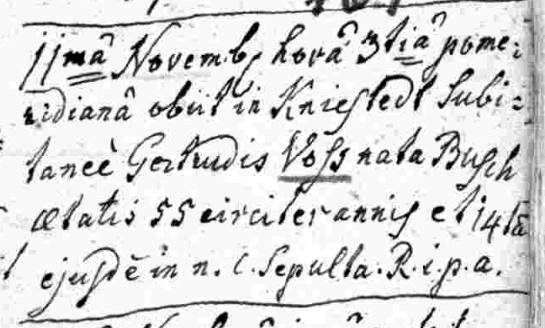 11mâ Novemb: horâ 3tiâ pome:
ridianâ obiit in Kniestedt Subi:
taneè Gertrudis Voss nata Busch
ætatis 55 circiter annis et 14tâ
ejusdē in n. C. Sepulta. R. i. p. a.